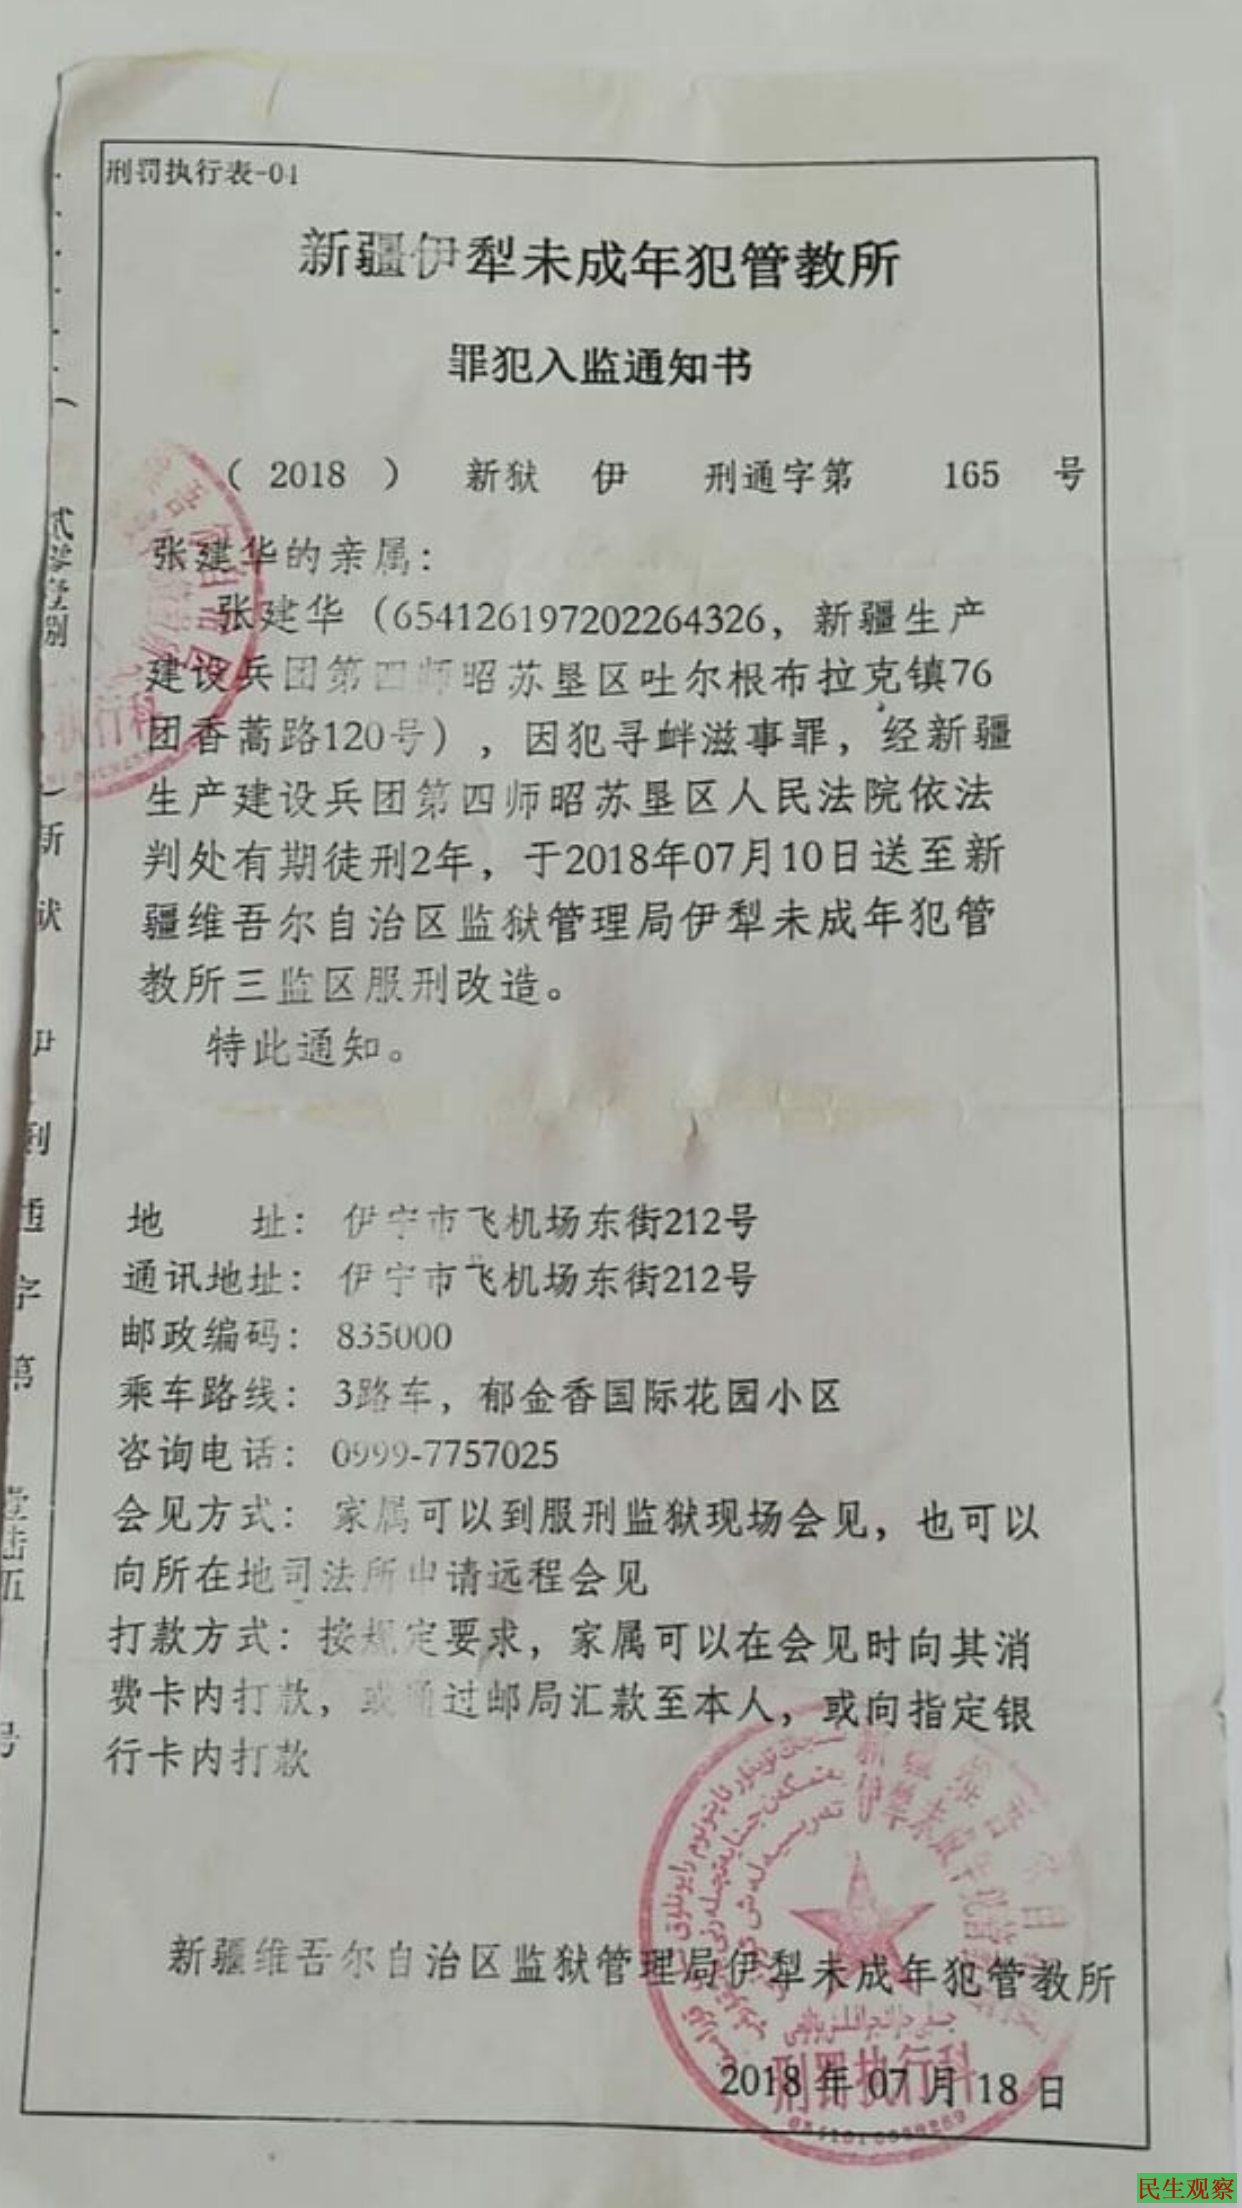 刑罚执行表-01
新疆伊犁未成年犯管教所
罪犯入监通知书
（ 2018 ） 新狱 伊 刑通字第 165 号
张建华的亲属：
张建华（654126197202264326，新疆生产
建设兵团第四师昭苏垦区吐尔根布拉克镇76
团香蒿路120号），因犯寻衅滋事罪，经新疆
生产建设兵团第四师昭苏垦区人民法院依法
判处有期徒刑2年，于2018年07月10日送至新
疆维吾尔自治区监狱管理局伊犁未成年犯管
教所三监区服刑改造。
特此通知。
地 址： 伊宁市飞机场东街212号
通讯地址： 伊宁市飞机场东街212号
邮政编码： 835000
乘车路线： 3路车，郁金香国际花园小区
咨询电话： 0999-7757025
会见方式： 家属可以到服刑监狱现场会见，也可以
向所在地司法所申请远程会见
打款方式：按规定要求，家属可以在会见时向其消
费卡内打款，或通过邮局汇款至本人，或向指定银
行卡内打款
新疆维吾尔自治区监狱管理局伊犁未成年犯管教所
2018 年 07 月 18 日
刑罚执行科
民生观察